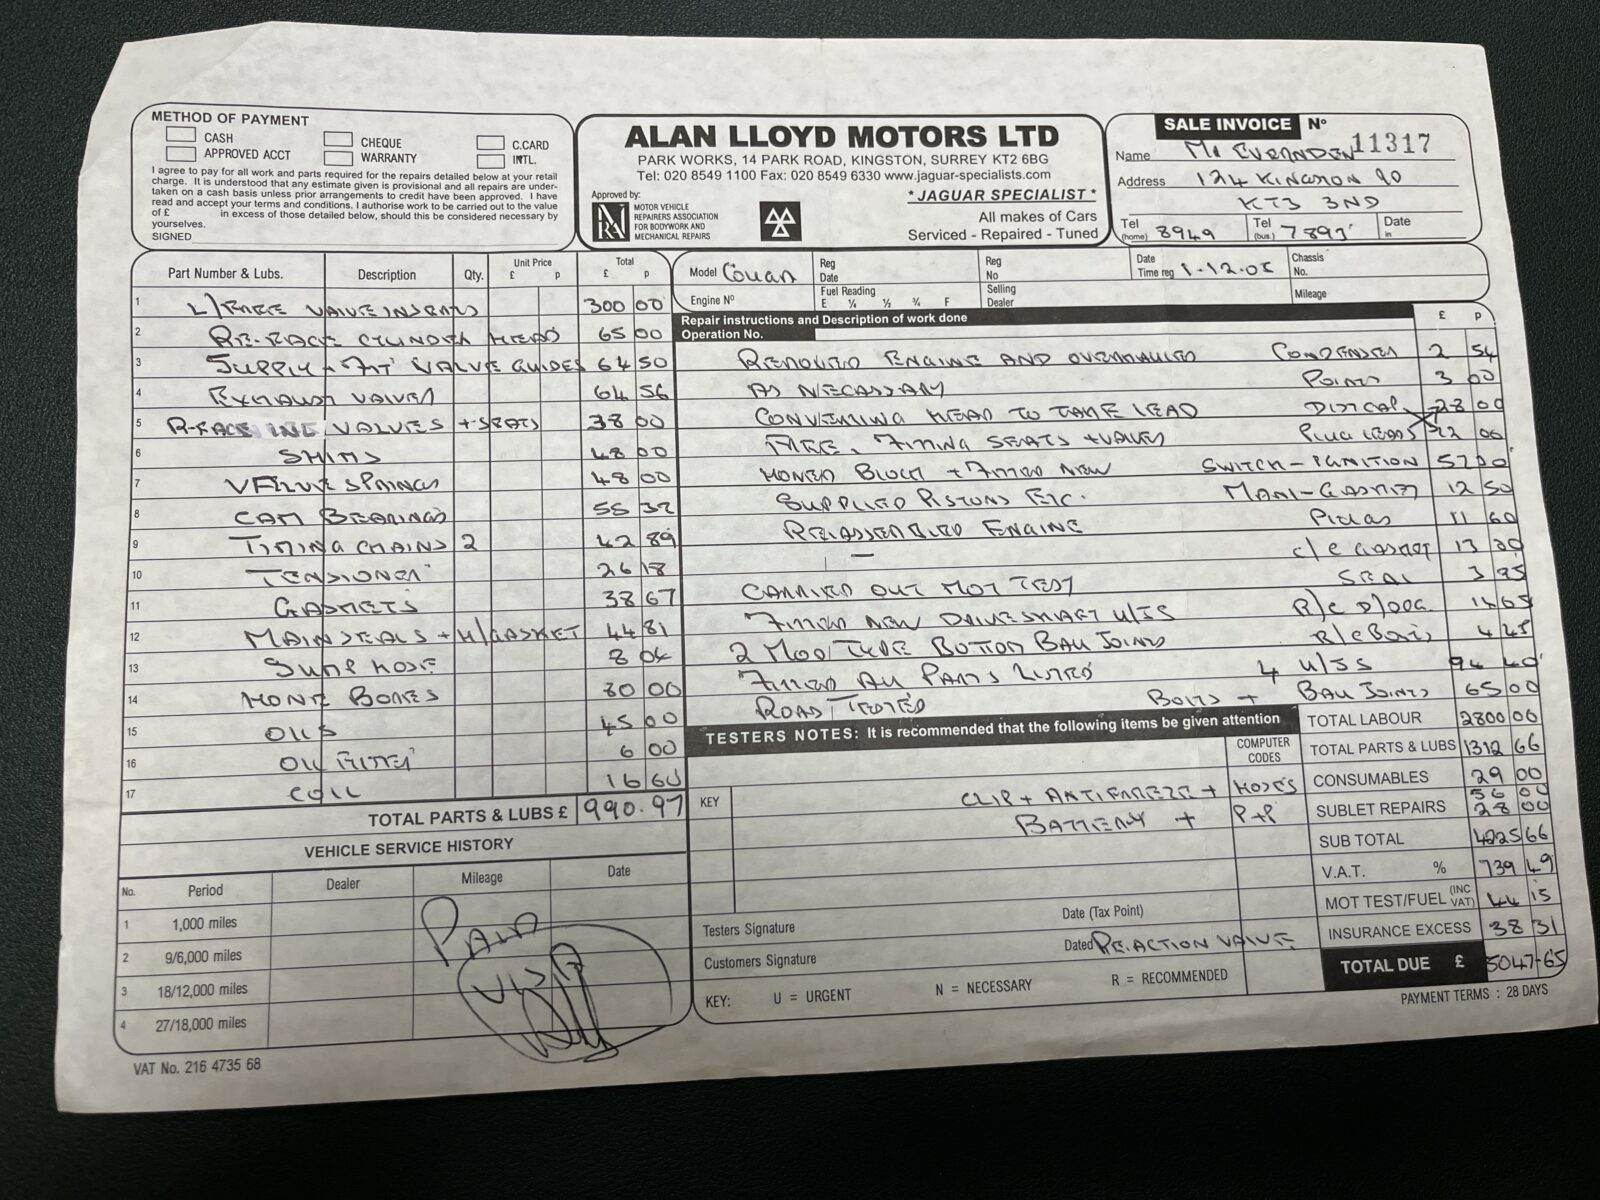 METHOD OF PAYMENT
CASH
CHEQUE
C.CARD
APPROVED ACCT
WARRANTY
INTL.
I agree to pay for all work and parts required for the repairs detailed below at your retail
charge. It is understood that any estimate given is provisional and all repairs are under-
taken on a cash basis unless prior arrangements to credit have been approved. I have
read and accept your terms and conditions. I authorise work to be carried out to the value
of £ in excess of those detailed below, should this be considered necessary by
yourselves.
SIGNED
ALAN LLOYD MOTORS LTD
PARK WORKS, 14 PARK ROAD, KINGSTON, SURREY KT2 6BG
Tel: 020 8549 1100 Fax: 020 8549 6330 www.jaguar-specialists.com
Approved by:
MOTOR VEHICLE
REPAIRERS ASSOCIATION
FOR BODYWORK AND
MECHANICAL REPAIRS
* JAGUAR SPECIALIST *
All makes of Cars
Serviced - Repaired - Tuned
SALE INVOICE Nº 11317
Name Mr EVERNDEN
Address 124 KINGSTON RD
KT3 3ND
Tel (home) 8949
Tel (bus.)
Date in
Part Number & Lubs. Description Qty. Unit Price £ p Total £ p
1 L/FREE VALVE INSERTS 300 00
2 RE-FACE CYLINDER HEAD 65 00
3 SUPPLY + FIT VALVE GUIDES 64 50
4 EXHAUST VALVES 64 56
5 R-FACE INL VALVES + SEATS 38 00
6 SHIMS 48 00
7 VALVE SPRINGS 48 00
8 CAM BEARINGS 55 32
9 TIMING CHAINS 2 42 89
10 TENSIONER 26 18
11 GASKETS 38 67
12 MAIN SEALS + H/GASKET 44 81
13 SUMP HOSE 8 04
14 HONE BORES 80 00
15 OILS 45 00
16 OIL FILTER 6 00
17 COIL 16 60
TOTAL PARTS & LUBS £ 990.97
VEHICLE SERVICE HISTORY
No. Period Dealer Mileage Date
1 1,000 miles
2 9/6,000 miles
3 18/12,000 miles
4 27/18,000 miles
PAID
VISA
VAT No. 216 4735 68
Model
Reg Date
Reg No
Date Time req 1-12-05
Chassis No.
Engine Nº
Fuel Reading E ¼ ½ ¾ F
Selling Dealer
Mileage
Repair instructions and Description of work done £ p
Operation No.
REMOVED ENGINE AND OVERHAULED CONDENSER 2 54
AS NECASSARY POINTS 3 00
CONVERTING HEAD TO TAKE LEAD DIST CAP 28 00
FREE, FITTING SEATS + VALVES PLUG LEADS 22 00
HONED BLOCK + FITTED NEW SWITCH - IGNITION
SUPPLIED PISTONS ETC. MANI-GASKET 12 50
REASSEMBLED ENGINE PLUGS 11 60
C/C GASKET
CARRIED OUT MOT TEST SEAL
FITTED NEW DRIVESHAFT U/JS
2 MOD TYPE BOTTOM BALL JOINTS
FITTED ALL PARTS LISTED 4 U/JS 94 40
ROAD TESTED BOLTS + BALL JOINTS 65 00
TESTERS NOTES: It is recommended that the following items be given attention
COMPUTER CODES
KEY
CLIP + ANTIFREEZE + HOSES
BATTERY + P+P
TOTAL LABOUR 2800 00
TOTAL PARTS & LUBS 1312 66
CONSUMABLES 29 00
56 00
SUBLET REPAIRS 28 00
SUB TOTAL 4225 66
V.A.T. % 739 49
MOT TEST/FUEL (INC VAT) 44 15
INSURANCE EXCESS 38 31
TOTAL DUE £ 5047-65
Testers Signature
Date (Tax Point)
Customers Signature
Dated RE.ACTION VALVE
KEY: U = URGENT N = NECESSARY R = RECOMMENDED
PAYMENT TERMS : 28 DAYS